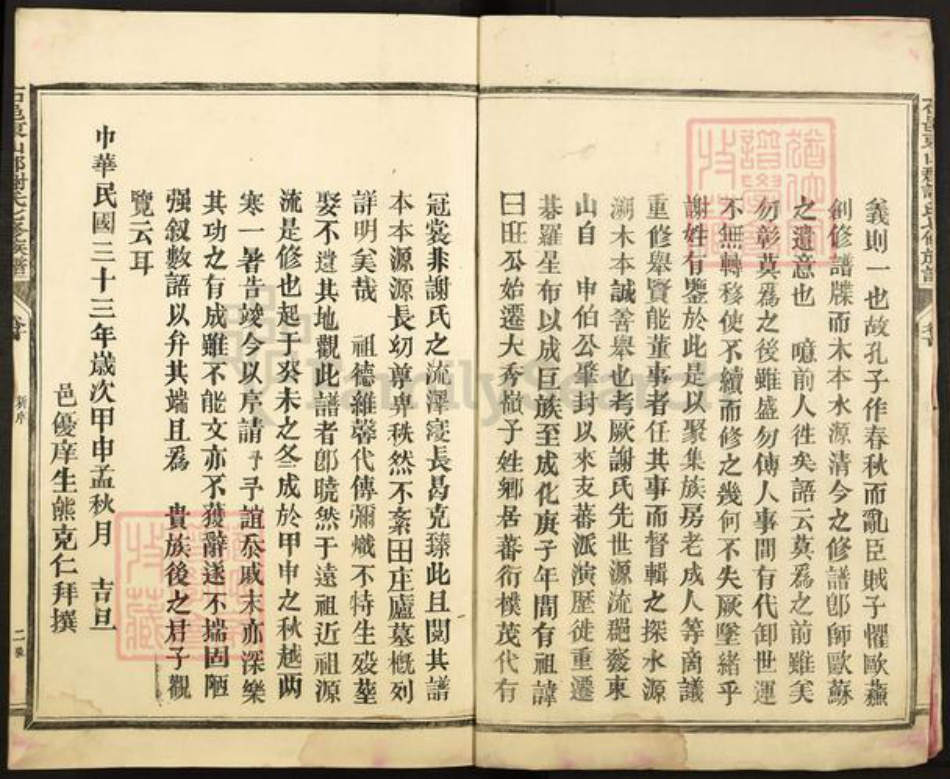 義則一也故孔子作春秋而亂臣賊子懼歐蘇
創修譜牒而木本水源清今之修譜卽師歐蘇
之遺意也 噫前人徃矣語云莫爲之前雖美
勿彰莫爲之後雖盛勿傳人事間有代卸世運
不無轉移使不續而修之幾何不失厥墜緒乎
謝姓有鑒於此是以聚集族房老成人等商議
重修舉賢能董事者任其事而督輯之探水源
溯木本誠善舉也考厥謝氏先世源流聰發東
山自 申伯公肇封以來支蕃派演歷徙重遷
碁羅星布以成巨族至成化庚子年間有祖諱
曰旺公始遷大秀嶺子姓鄉居蕃衍樸茂代有
冠裳非謝氏之流澤寖長曷克臻此且閱其譜
本本源源長幼尊卑秩然不紊田庄廬墓概列
詳明美哉 祖德維馨代傳彌熾不特生殁塟
娶不遺其地觀此譜者卽曉然于遠祖近祖源
流是修也起于癸未之冬成於甲申之秋越兩
寒一暑告竣今以序請予予誼忝戚末亦深樂
其功之有成雖不能文亦不獲辭遂不揣固陋
强叙數語以弁其端且爲 貴族後之君子觀
覽云耳
中華民國三十三年歲次甲申孟秋月 吉旦
邑優庠生熊克仁拜撰
新序
FamilySearch